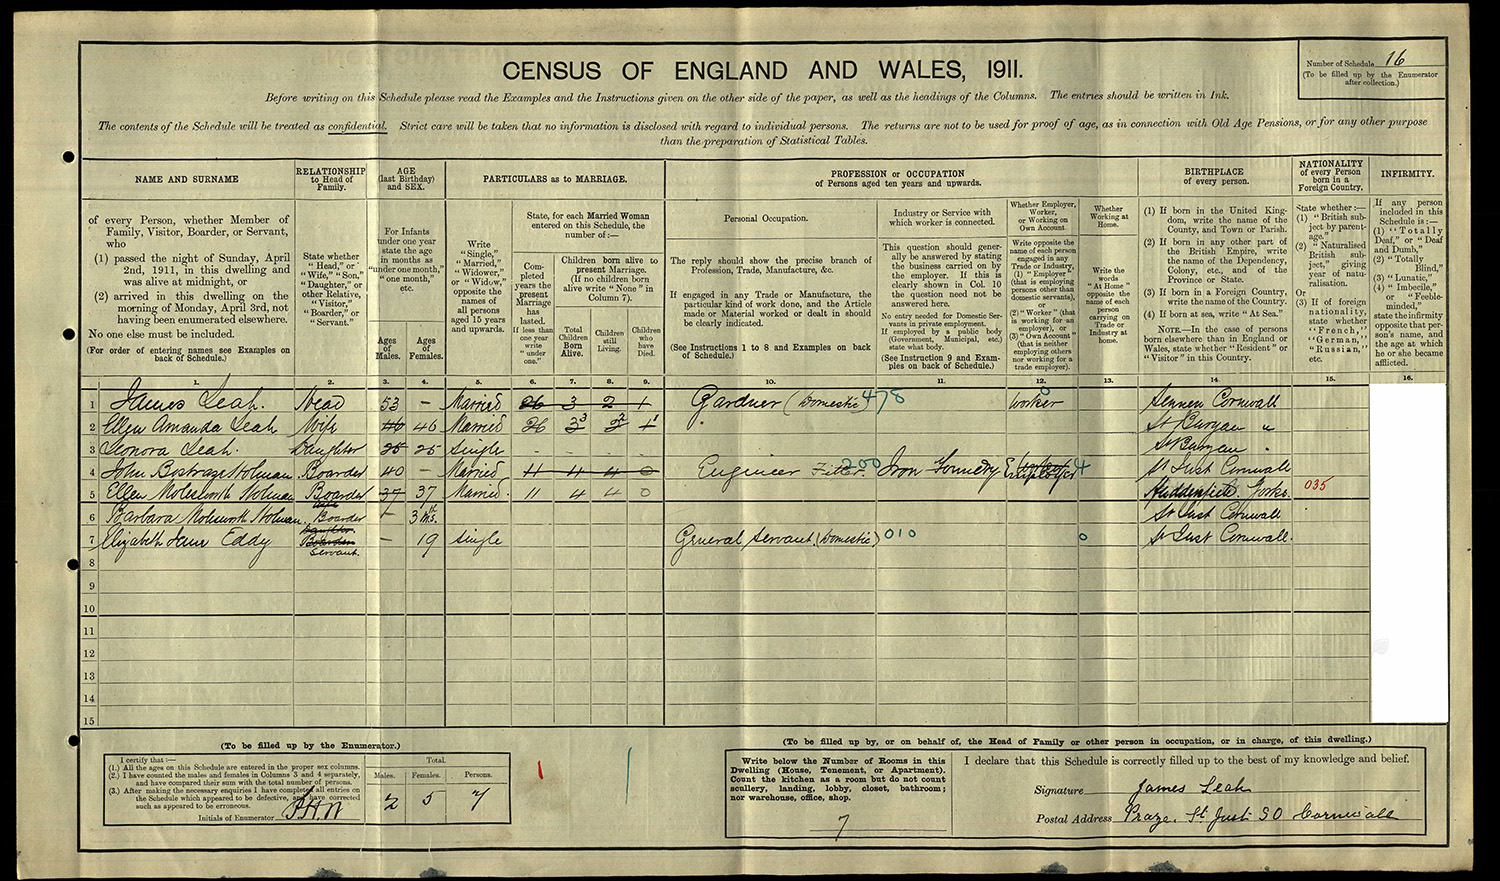 CENSUS OF ENGLAND AND WALES, 1911.
Number of Schedule 16
(To be filled up by the Enumerator
after collection.)
Before writing on this Schedule please read the Examples and the Instructions given on the other side of the paper, as well as the headings of the Columns. The entries should be written in Ink.
The contents of the Schedule will be treated as confidential. Strict care will be taken that no information is disclosed with regard to individual persons. The returns are not to be used for proof of age, as in connection with Old Age Pensions, or for any other purpose
than the preparation of Statistical Tables.
NAME AND SURNAME
of every Person, whether Member of
Family, Visitor, Boarder, or Servant,
who
(1) passed the night of Sunday, April
2nd, 1911, in this dwelling and
was alive at midnight, or
(2) arrived in this dwelling on the
morning of Monday, April 3rd, not
having been enumerated elsewhere.
No one else must be included.
(For order of entering names see Examples on
back of Schedule.)
RELATIONSHIP
to Head of
Family.
State whether
"Head," or
"Wife," "Son,"
"Daughter," or
other Relative,
"Visitor,"
"Boarder," or
"Servant."
AGE
(last Birthday)
and SEX.
For Infants
under one year
state the age
in months as
"under one month,"
"one month,"
etc.
Ages
of
Males.
Ages
of
Females.
PARTICULARS as to MARRIAGE.
Write
"Single,"
"Married,"
"Widower,"
or "Widow,"
opposite the
names of
all persons
aged 15 years
and upwards.
State, for each Married Woman
entered on this Schedule, the
number of:—
Com-
pleted
years the
present
Marriage
has
lasted.
If less than
one year
write
"under
one."
Children born alive to
present Marriage.
(If no children born
alive write "None" in
Column 7).
Total
Children
Born
Alive.
Children
still
Living.
Children
who
have
Died.
PROFESSION or OCCUPATION
of Persons aged ten years and upwards.
Personal Occupation.
The reply should show the precise branch of
Profession, Trade, Manufacture, &c.
If engaged in any Trade or Manufacture, the
particular kind of work done, and the Article
made or Material worked or dealt in should
be clearly indicated.
(See Instructions 1 to 8 and Examples on back
of Schedule.)
Industry or Service with
which worker is connected.
This question should gener-
ally be answered by stating
the business carried on by
the employer. If this is
clearly shown in Col. 10
the question need not be
answered here.
No entry needed for Domestic Ser-
vants in private employment.
If employed by a public body
(Government, Municipal, etc.)
state what body.
(See Instruction 9 and Exam-
ples on back of Schedule.)
Whether Employer,
Worker,
or Working on
Own Account.
Write opposite the
name of each person
engaged in any
Trade or Industry,
(1) "Employer"
(that is employing
persons other than
domestic servants),
or
(2) "Worker" (that
is working for an
employer), or
(3) "Own Account"
(that is neither
employing others
nor working for a
trade employer).
Whether
Working at
Home.
Write the
words
"At Home"
opposite the
name of each
person
carrying on
Trade or
Industry at
home.
BIRTHPLACE
of every person.
(1) If born in the United King-
dom, write the name of the
County, and Town or Parish.
(2) If born in any other part of
the British Empire, write
the name of the Dependency,
Colony, etc., and of the
Province or State.
(3) If born in a Foreign Country,
write the name of the Country.
(4) If born at sea, write "At Sea."
NOTE.—In the case of persons
born elsewhere than in England or
Wales, state whether "Resident" or
"Visitor" in this Country.
NATIONALITY
of every Person
born in a
Foreign Country.
State whether:—
(1) "British sub-
ject by parent-
age."
(2) "Naturalised
British sub-
ject," giving
year of natu-
ralisation.
Or
(3) If of foreign
nationality,
state whether
"French,"
"German,"
"Russian,"
etc.
INFIRMITY.
If any person
included in this
Schedule is:—
(1) "Totally
Deaf," or "Deaf
and Dumb,"
(2) "Totally
Blind,"
(3) "Lunatic,"
(4) "Imbecile,"
or "Feeble-
minded,"
state the infirmity
opposite that per-
son's name, and
the age at which
he or she became
afflicted.
1. 2. 3. 4. 5. 6. 7. 8. 9. 10. 11. 12. 13. 14. 15. 16.
1 James Leah. Head 53 – Married 26 3 2 1 Gardner (Domestic) 478 Worker 0 Sennen Cornwall
2 Ellen Amanda Leah Wife 46 46 Married 26 3 3 2 2 1 1 St Buryan "
3 Leonora Leah. Daughter 25 25 Single - - - - St Buryan "
4 John Bostraze Holman Boarder 40 – Married 11 4 4 0 Engineer Fitter 200 Iron Foundry Worker Employer 4 St Just Cornwall
5 Ellen Molesworth Holman Boarder 37 37 Married. 11 4 4 0 Huddersfield. Yorks. 035
6 Barbara Molesworth Holman. Boarder – 3 Mts. St Just Cornwall
7 Elizabeth Jane Eddy Boarder Servant. – 19 Single General Servant (Domestic) 010 0 St Just Cornwall.
8
9
10
11
12
13
14
15
(To be filled up by the Enumerator.)
I certify that:—
(1.) All the ages on this Schedule are entered in the proper sex columns.
(2.) I have counted the males and females in Columns 3 and 4 separately,
and have compared their sum with the total number of persons.
(3.) After making the necessary enquiries I have completed all entries on
the Schedule which appeared to be defective, and have corrected
such as appeared to be erroneous.
Initials of Enumerator
Total.
Males. Females. Persons.
2 5 7
(To be filled up by, or on behalf of, the Head of Family or other person in occupation, or in charge, of this dwelling.)
Write below the Number of Rooms in this
Dwelling (House, Tenement, or Apartment).
Count the kitchen as a room but do not count
scullery, landing, lobby, closet, bathroom;
nor warehouse, office, shop.
7
I declare that this Schedule is correctly filled up to the best of my knowledge and belief.
Signature James Leah
Postal Address Praze. St Just SO Cornwall